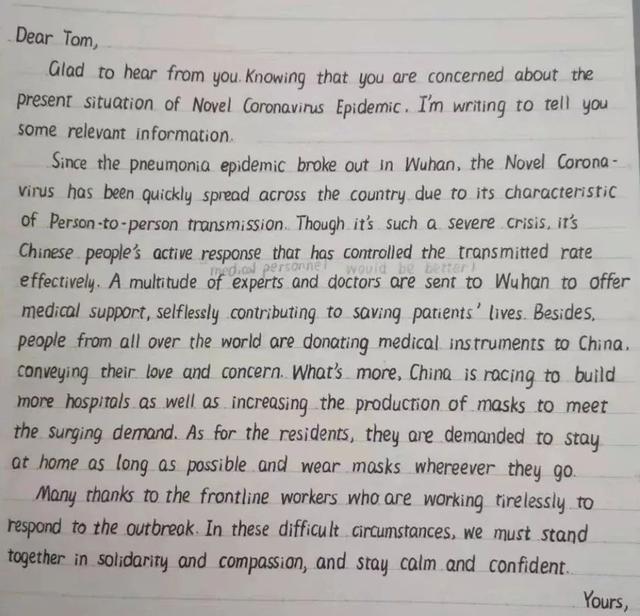 Dear Tom,
Glad to hear from you. Knowing that you are concerned about the
present situation of Novel Coronavirus Epidemic. I'm writing to tell you
some relevant information.
Since the pneumonia epidemic broke out in Wuhan, the Novel Corona-
virus has been quickly spread across the country due to its characteristic
of Person-to-person transmission. Though it's such a severe crisis, it's
Chinese people's active response that has controlled the transmitted rate
medical personnel would be better!
effectively. A multitude of experts and doctors are sent to Wuhan to offer
medical support, selflessly contributing to saving patients' lives. Besides,
people from all over the world are donating medical instruments to China,
conveying their love and concern. What's more, China is racing to build
more hospitals as well as increasing the production of masks to meet
the surging demand. As for the residents, they are demanded to stay
at home as long as possible and wear masks whereever they go.
Many thanks to the frontline workers who are working tirelessly to
respond to the outbreak. In these difficult circumstances, we must stand
together in solidarity and compassion, and stay calm and confident.
Yours,